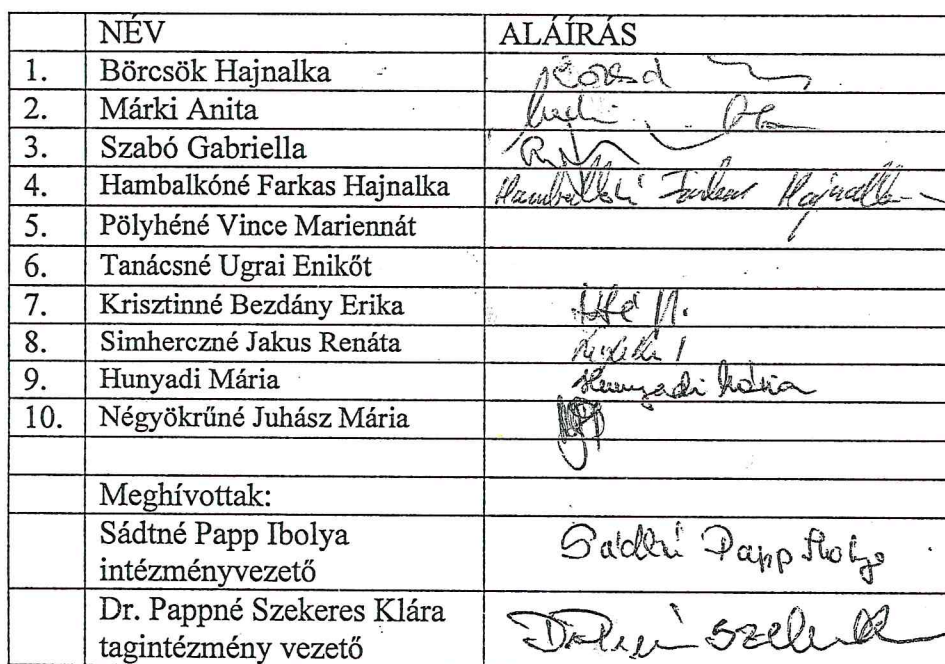 NÉV ALÁÍRÁS
1. Börcsök Hajnalka
2. Márki Anita
3. Szabó Gabriella
4. Hambalkóné Farkas Hajnalka Hambalkóné Farkas Hajnalka
5. Pölyhéné Vince Mariennát
6. Tanácsné Ugrai Enikőt
7. Krisztinné Bezdány Erika
8. Simherczné Jakus Renáta
9. Hunyadi Mária Hunyadi Mária
10. Négyökrűné Juhász Mária
Meghívottak:
Sádtné Papp Ibolya Sádtné Papp Ibolya
intézményvezető
Dr. Pappné Szekeres Klára
tagintézmény vezető